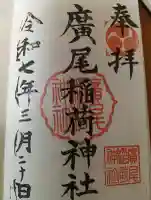 奉拝
廣尾稲荷神社
令和七年三月二十日